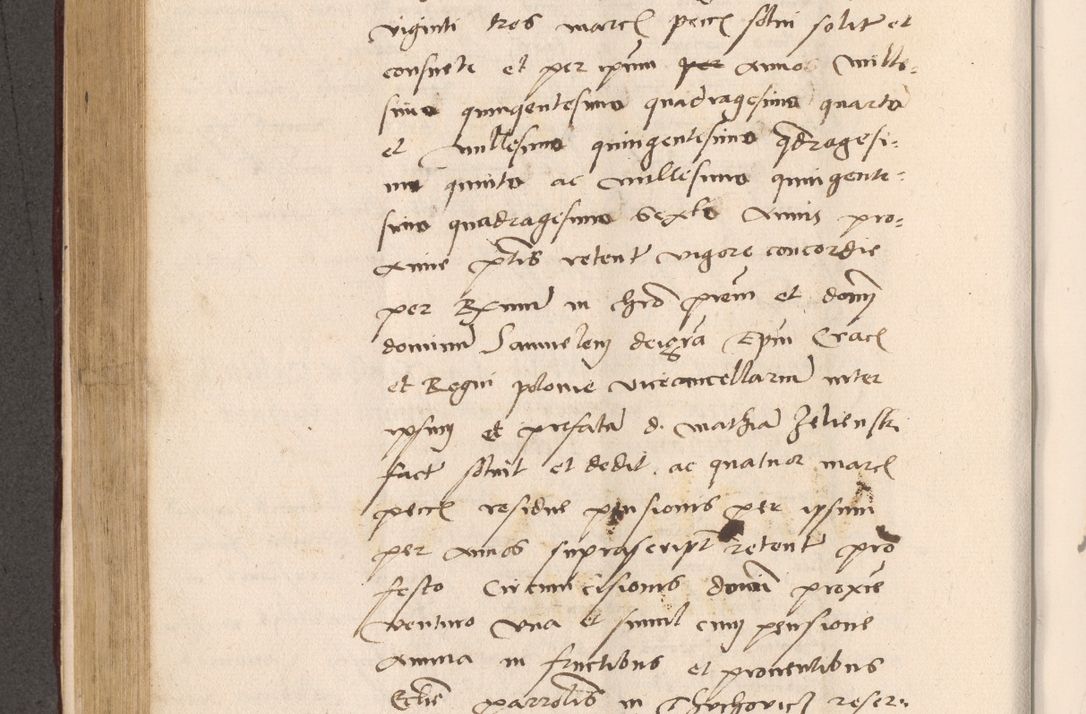 viginti tres march pecch solvi solit et
consueti et per ipsum per annos mille=
simo quingentesimo quadragesimo quarto
et millesimo quingentesimo qdragesi=
mo quinto ac millesimo quingente=
simo quadragesimo sexto annis pro=
xime ptis retent vigore concordie
per Rxmum in chro prem et domn
dominum Samuelem deigra Epm Crach
et Regni polonie vicecancellarium inter
ipsum et prefatum d. mathiam Zelienski
fact solvit et dedit. ac quatuor march
pecch residue pensionis per ipsum
per annos suprascript retent pro
festo Circumcisionis domini proxie
venturo una et simul cum pensione
annua in fructibus et proventibus
Ecclie parrolis in reser=